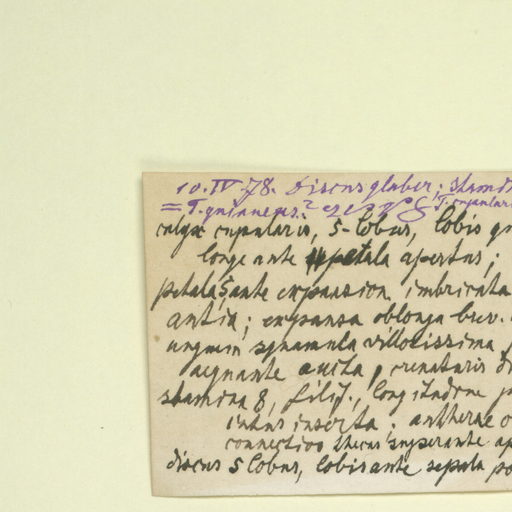 10. IV 78. Discus glaber; stam
= T. guianens.? T. cupular
calyx cupularis, 5-lobus, lobis
longe ante petala apertus;
petala 5 ante expansion. imbricata
antia; expansa oblonga brev.
unguem squamula villosissima
aequante aucta, crenaturis
stamina 8, filif., longitudine
intus inserta. antherae
connectivo thecas superante ap
discus 5 lobus, lobis ante sepala po